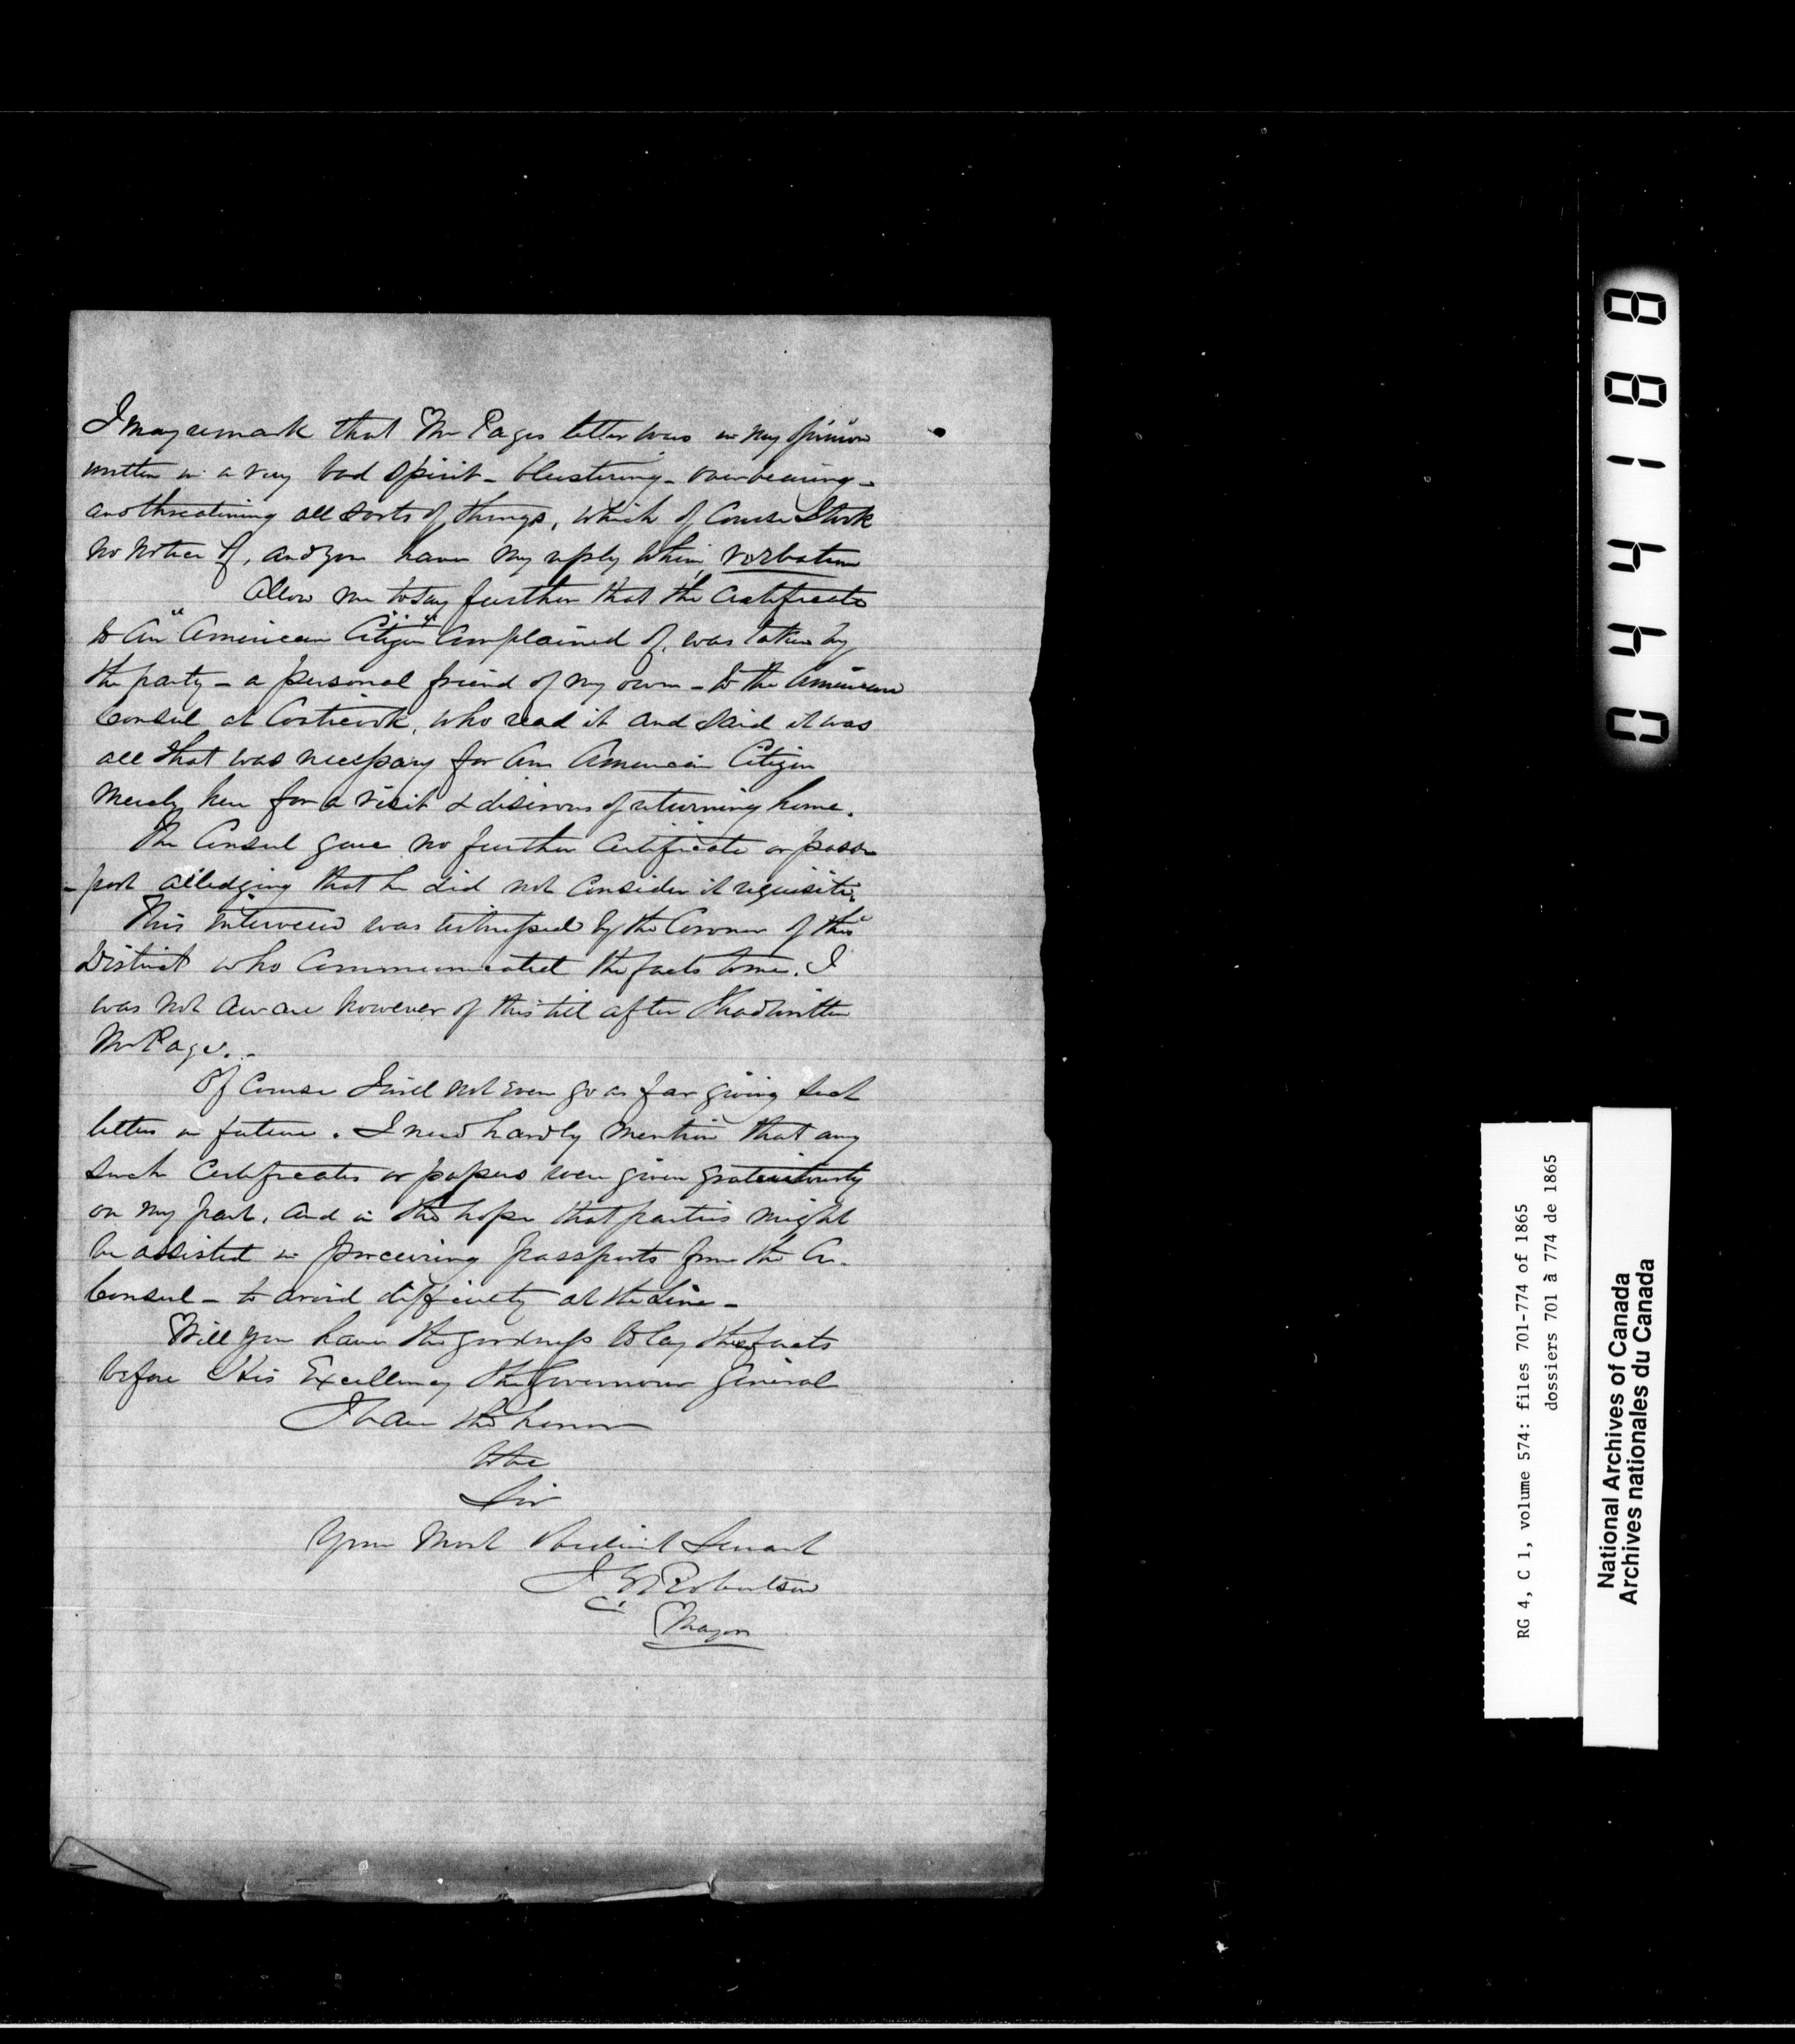 I may remark that Mr Pages letter was in my opinion
written in a very bad spirit - blustering - overbearing -
and threatening all sorts of things, which of course I took
no notice of, and you have my reply to him, verbatim
Allow me to say further that the Certificate
to an "American Citizen" complained of, was taken by
the party - a personal friend of my own - to the American
Consul at Coaticook, who read it and said it was
all that was necessary for an American Citizen
merely here for a visit & desirous of returning home.
The Consul gave no further Certificate or pass
-port alledging that he did not consider it requisite.
This interview was witnessed by the Coroner of this
District who communicated the facts to me. I
was not aware however of this till after I had written
Mr Page.
Of course I will not even go as far giving such
letters in future. I need hardly mention that any
such Certificates or papers were given gratuitously
on my part, and in the hope that parties might
be assisted in procuring passports from the Am.
Consul - to avoid difficulty at the Line -
Will you have the goodness to lay these facts
before His Excellency the Governour General
I have the honor
to be
Sir
Your Most Obedient Servant
J G Robertson
Mayor
044188
RG 4, C 1, volume 574: files 701-774 of 1865
dossiers 701 à 774 de 1865
National Archives of Canada
Archives nationales du Canada